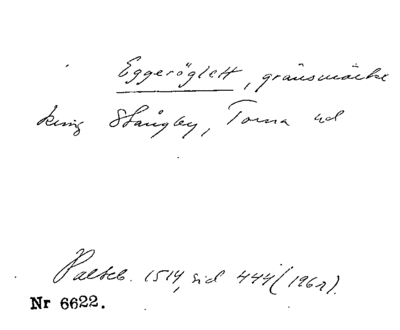 Eggeröglett, gränsmärke
kring Stångby, Torna hd
Palteb. 1514, sid 444 (1961).
Nr 6622.